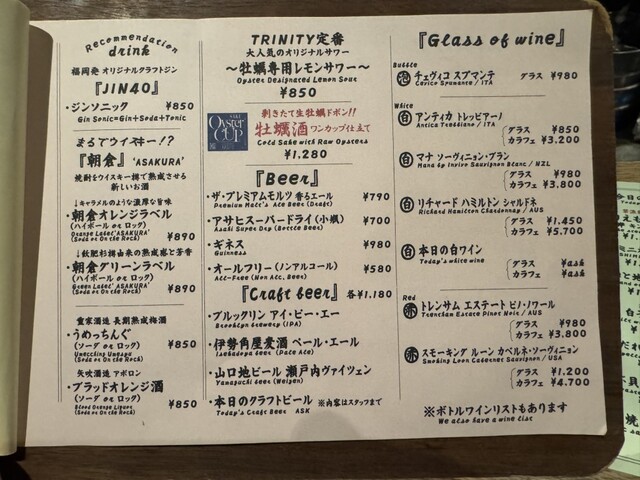 Recommendation
drink
福岡発 オリジナルクラフトジン
『JIN40』
・ジンソニック ¥850
Gin Sonic=Gin+Soda+Tonic
まるでウイスキー!?
『朝倉』'ASAKURA'
焼酎をウイスキー樽で熟成させる
新しいお酒
↓キャラメルのような濃厚な旨味
・朝倉オレンジラベル
(ハイボール or ロック) ¥890
Orange Label'ASAKURA'
(Soda or On the Rock)
・朝倉グリーンラベル
(ハイボール or ロック)
Green Label'ASAKURA' ¥890
(Soda or On the Rock)
重家酒造 長期熟成梅酒
・うめっちんぐ
(ソーダ or ロック) ¥850
Umecching Umeshu
(Soda or On the Rock)
矢吹酒造 アポロン
・ブラッドオレンジ酒
(ソーダ or ロック) ¥850
Blood Orange Liquor
(Soda or On the Rock)
TRINITY定番
大人気のオリジナルサワー
〜牡蠣専用レモンサワー〜
Oyster Designated Lemon Sour
¥850
SAKE
OYSTER
CUP
剥きたて生牡蠣ドボン!!
牡蠣酒 ワンカップ仕立て
Cold Sake with Raw Oysters
¥1.280
『Beer』
・ザ・プレミアムモルツ 香るエール ¥790
Premium Malt's Ale Beer (Draft)
・アサヒスーパードライ(小瓶) ¥700
Asahi Super Dry (Bottle Beer)
・ギネス ¥980
Guinness
・オールフリー(ノンアルコール) ¥580
All-Free (Non Alc, Beer)
『Craft beer』各¥1.180
・ブルックリン アイ・ピー・エー
Brooklyn brewery (IPA)
・伊勢角屋麦酒 ペール・エール
Isekadoya beer (Pale Ale)
・山口地ビール 瀬戸内ヴァイツェン
Yamaguchi beer (Weizen)
・本日のクラフトビール ※内容はスタッフまで
Today's Craft Beer ASK
『Glass of wine』
Bubble
泡 チェヴィコ スプマンテ グラス ¥980
Cevico Spumante / ITA
White
白 アンティカ トレッビアーノ
Antica Trebbiano / ITA
グラス ¥850
カラフェ ¥3.200
白 マナ ソーヴィニョン・ブラン
Mana by Invivo Sauvignon Blanc / NZL
グラス ¥980
カラフェ ¥3.800
白 リチャード ハミルトン シャルドネ
Richard Hamilton Chardonnay / AUS
グラス ¥1.450
カラフェ ¥5.700
白 本日の白ワイン
Today's white wine
グラス ¥ask
カラフェ ¥ask
Red
赤 トレンサム エステート ピノ・ノワール
Trentham Estate Pinot Noir / AUS
グラス ¥980
カラフェ ¥3.800
赤 スモーキング ルーン カベルネ・ソーヴィニョン
Smoking Loon Cabernet Sauvignon / USA
グラス ¥1,200
カラフェ ¥4.700
※ボトルワインリストもあります
We also have a wine list